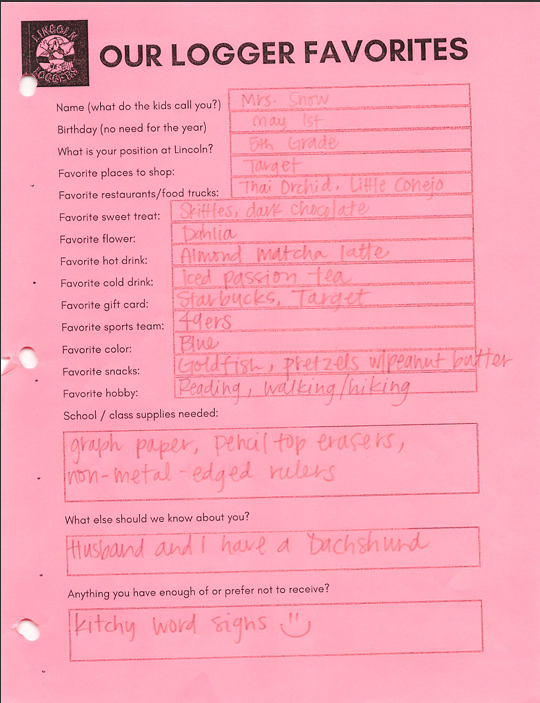 LINCOLN
LOGGERS
OUR LOGGER FAVORITES
Name (what do the kids call you?) Mrs. Snow
Birthday (no need for the year) May 1st
What is your position at Lincoln? 5th Grade
Favorite places to shop: Target
Favorite restaurants/food trucks: Thai Orchid, Little Conejo
Favorite sweet treat: Skittles, dark chocolate
Favorite flower: Dahlia
Favorite hot drink: Almond matcha latte
Favorite cold drink: Iced passion tea
Favorite gift card: Starbucks, Target
Favorite sports team: 49ers
Favorite color: Blue
Favorite snacks: Goldfish, pretzels w/peanut butter
Favorite hobby: Reading, walking/hiking
School / class supplies needed:
graph paper, pencil top erasers,
non-metal-edged rulers
What else should we know about you?
Husband and I have a Dachshund
Anything you have enough of or prefer not to receive?
kitchy word signs